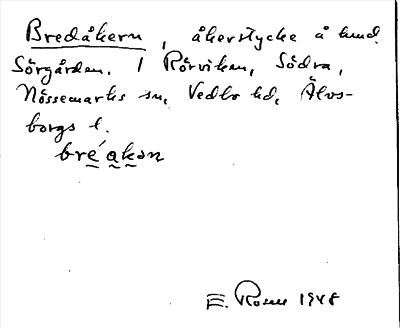 Bredåkern, åkerstycke å hmd.
Sörgården. 1 Rörviken, Södra,
Nössemarks sn, Vedbo hd, Älvs-
borgs l.
bréakən
E. Rosell 1948